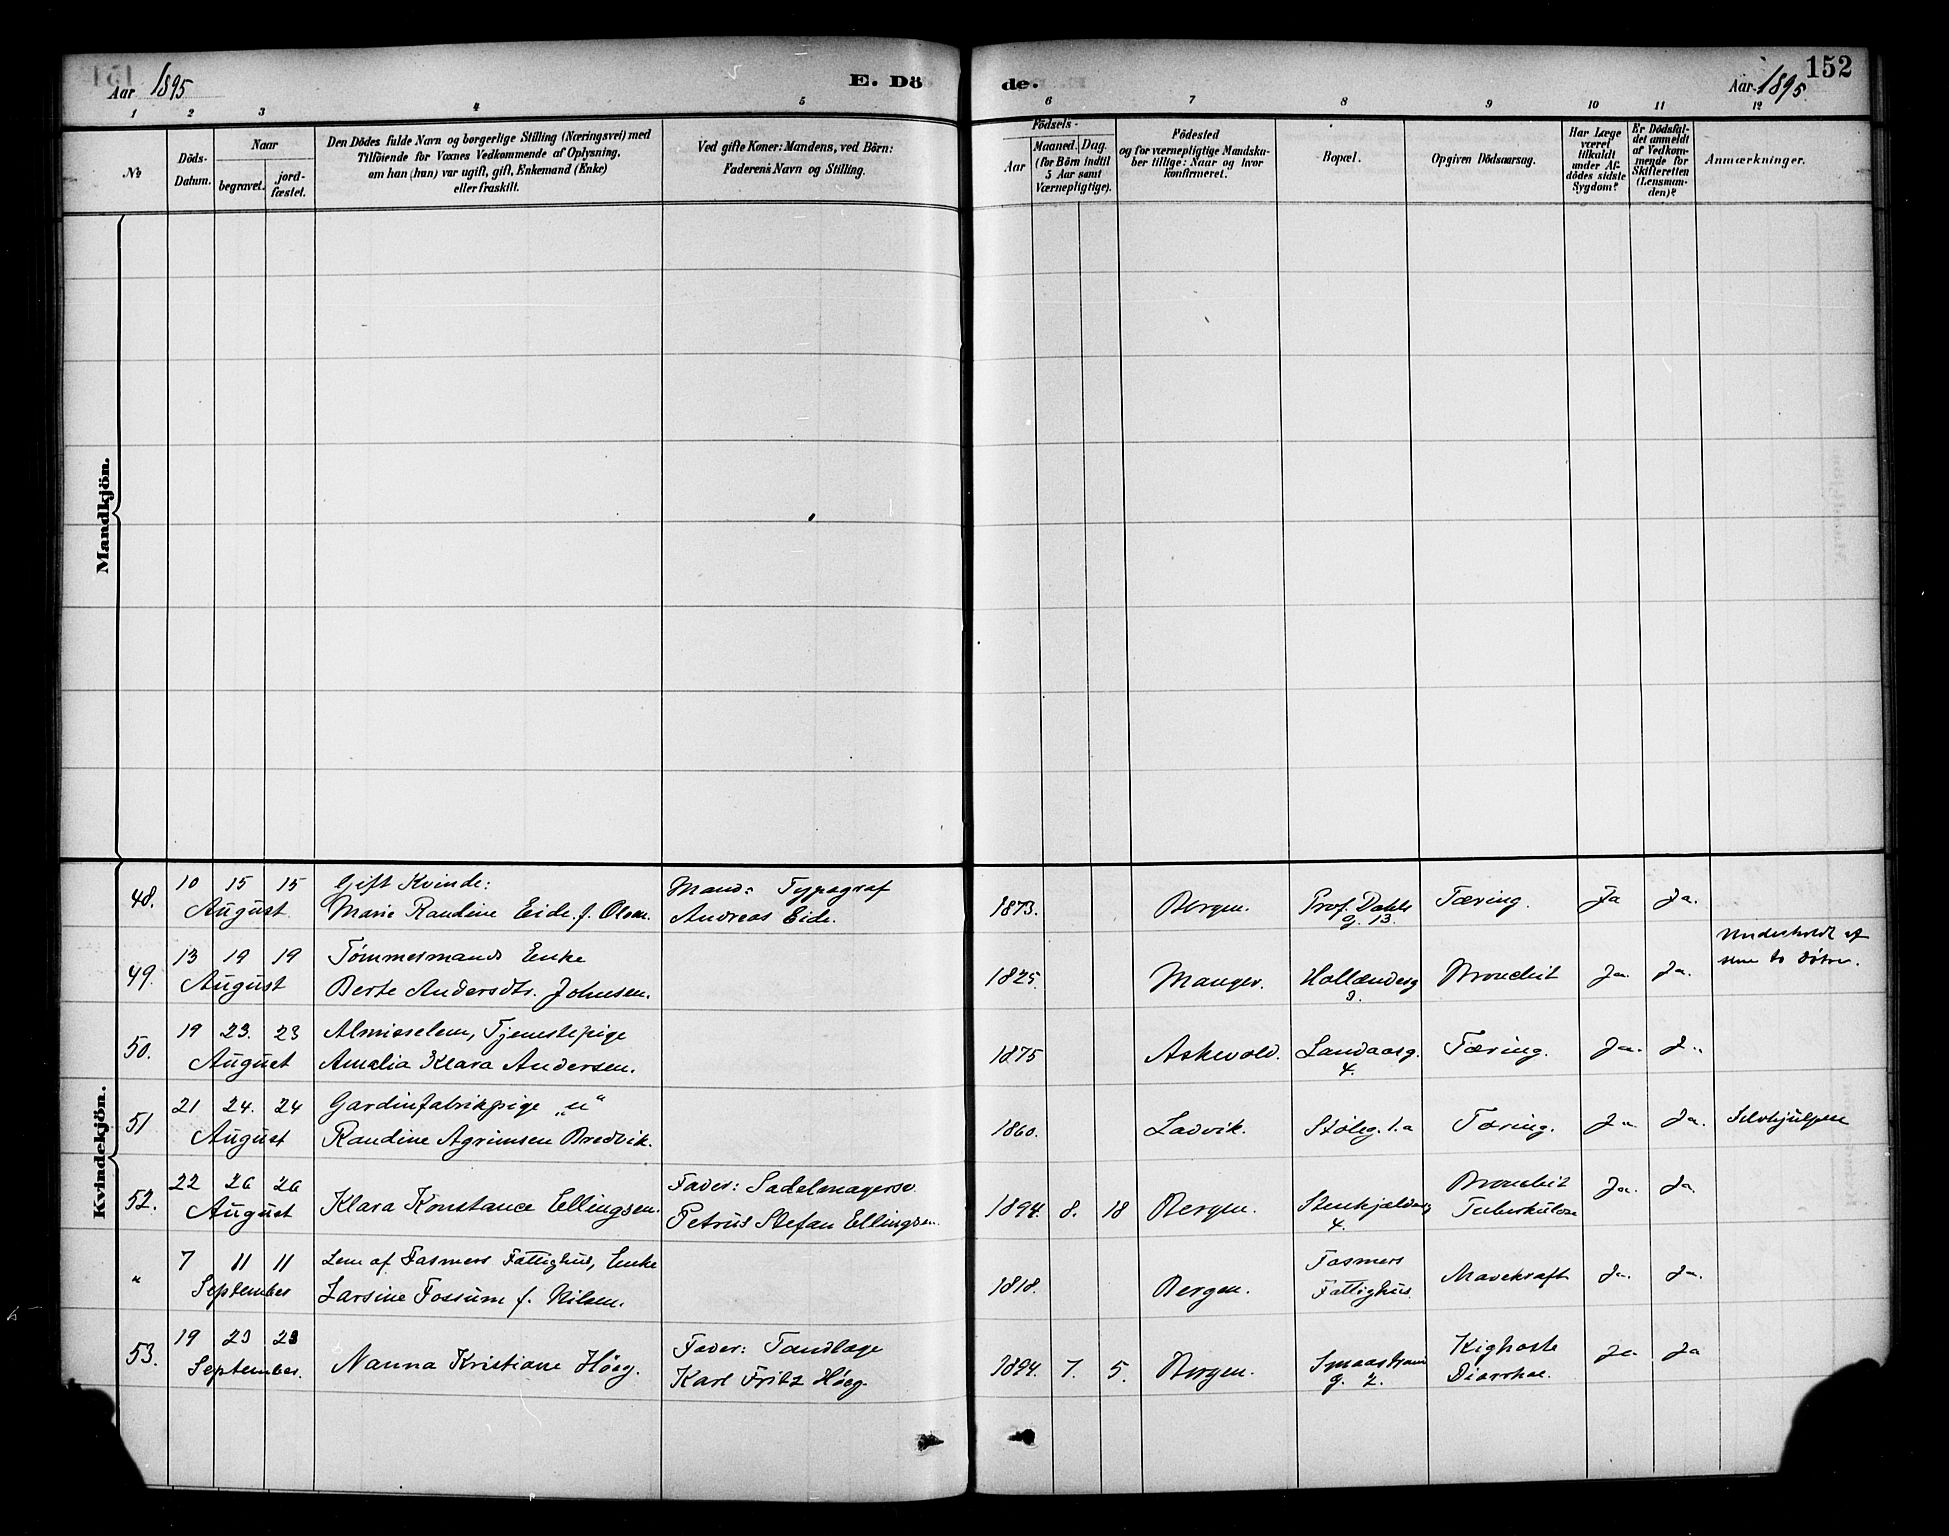 Aar 1895
E. Dö
de.
Aar 1895
152
1 2 3 4 5 6 7 8 9 10 11 12
No
Döds-
Datum.
Naar
begravet.
jord-
fæstet.
Den Dödes fulde Navn og borgerlige Stilling (Næringsvei) med
Tilföiende for Voxnes Vedkommende af Oplysning,
om han (hun) var ugift, gift, Enkemand (Enke)
eller fraskilt.
Ved gifte Koner: Mandens, ved Börn:
Faderens Navn og Stilling.
Födsels-
Aar
Maaned. Dag.
(for Börn indtil
5 Aar samt
Værnepligtige).
Födested
og for værnepligtige Mandska-
ber tillige: Naar og hvor
konfirmeret.
Bopæl.
Opgiven Dödsaarsag.
Har Læge
været
tilkaldt
under Af-
dödes sidste
Sygdom?
Er Dödsfal-
det anmeldt
af Vedkom-
mende for
Skifteretten
(Lensman-
den)?
Anmærkninger.
Mandkjön.
Kvindekjön.
48. 10 15 15 August
Gift Kvinde:
Marie Randine Eide f. Olsen.
Mand: Typograf
Andreas Eide.
1873. Bergen. Prof. Dahls
g. 13.
Tæring. Ja Ja.
49. 13 19 19 August
Tømmermands Enke
Berte Andersdtr. Johnsen.
1825. Manger. Hollænderg
9.
Bronchit Ja. Ja.
Underholdt af
sine to døtre.
50. 19 23. 23 August
Almisselem, Tjenestepige
Amalia Klara Andersen.
1875 Askevold. Landaasg.
4.
Tæring. Ja. J..
51 21 24. 24 August
Gardinfabrikpige "u"
Randine Agrimsen Bredvik.
1860. Ladvik. Støleg. 1.a Tæring. Ja Ja. Selvhjulpen
52. 22 26 26 August
Klara Konstance Ellingsen.
Fader: Sadelmagersv.
Petrus Stefan Ellingsen.
1894. 8. 18 Bergen.
4.
Bronchit
Tuberkulose
Ja. Ja.
" 7 11 11 September
Lem af Fasmers Fattighus, Enke
Larsine Fossum f. Nilsen.
1818. Bergen. Fasmers
Fattighus.
Mavekræft Ja. Ja.
53. 19 23 23 September.
Nanna Kristiane Høeg.
Fader: Tandlæge
Karl Fritz Høeg.
1894. 7. 5. Bergen.
g. 2.
Kighoste
Diarrhoe.
Ja Ja